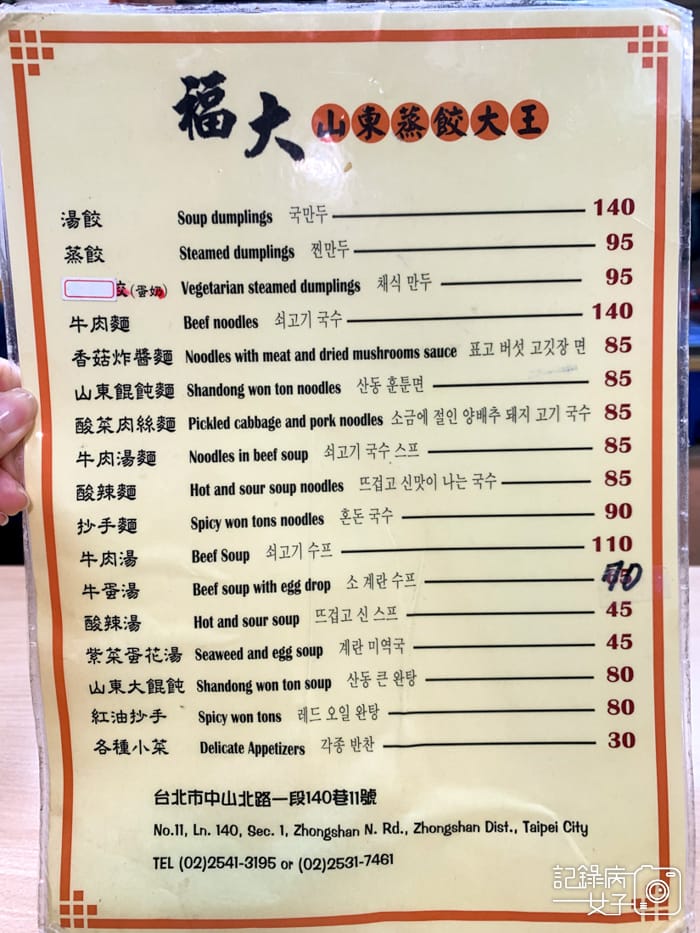 福大 山東蒸餃大王
湯餃 Soup dumplings 국만두 140
蒸餃 Steamed dumplings 찐만두 95
餃(蛋奶) Vegetarian steamed dumplings 채식 만두 95
牛肉麵 Beef noodles 쇠고기 국수 140
香菇炸醬麵 Noodles with meat and dried mushrooms sauce 표고 버섯 고깃장 면 85
山東餛飩麵 Shandong won ton noodles 산동 훈툰면 85
酸菜肉絲麵 Pickled cabbage and pork noodles 소금에 절인 양배추 돼지 고기 국수 85
牛肉湯麵 Noodles in beef soup 쇠고기 국수 스프 85
酸辣麵 Hot and sour soup noodles 뜨겁고 신맛이 나는 국수 85
抄手麵 Spicy won tons noodles 혼돈 국수 90
牛肉湯 Beef Soup 쇠고기 수프 110
牛蛋湯 Beef soup with egg drop 소 계란 수프 70
酸辣湯 Hot and sour soup 뜨겁고 신 스프 45
紫菜蛋花湯 Seaweed and egg soup 계란 미역국 45
山東大餛飩 Shandong won ton soup 산동 큰 완탕 80
紅油抄手 Spicy won tons 레드 오일 완탕 80
各種小菜 Delicate Appetizers 각종 반찬 30
台北市中山北路一段140巷11號
No.11, Ln. 140, Sec. 1, Zhongshan N. Rd., Zhongshan Dist., Taipei City
TEL (02)2541-3195 or (02)2531-7461
記錄病
女子